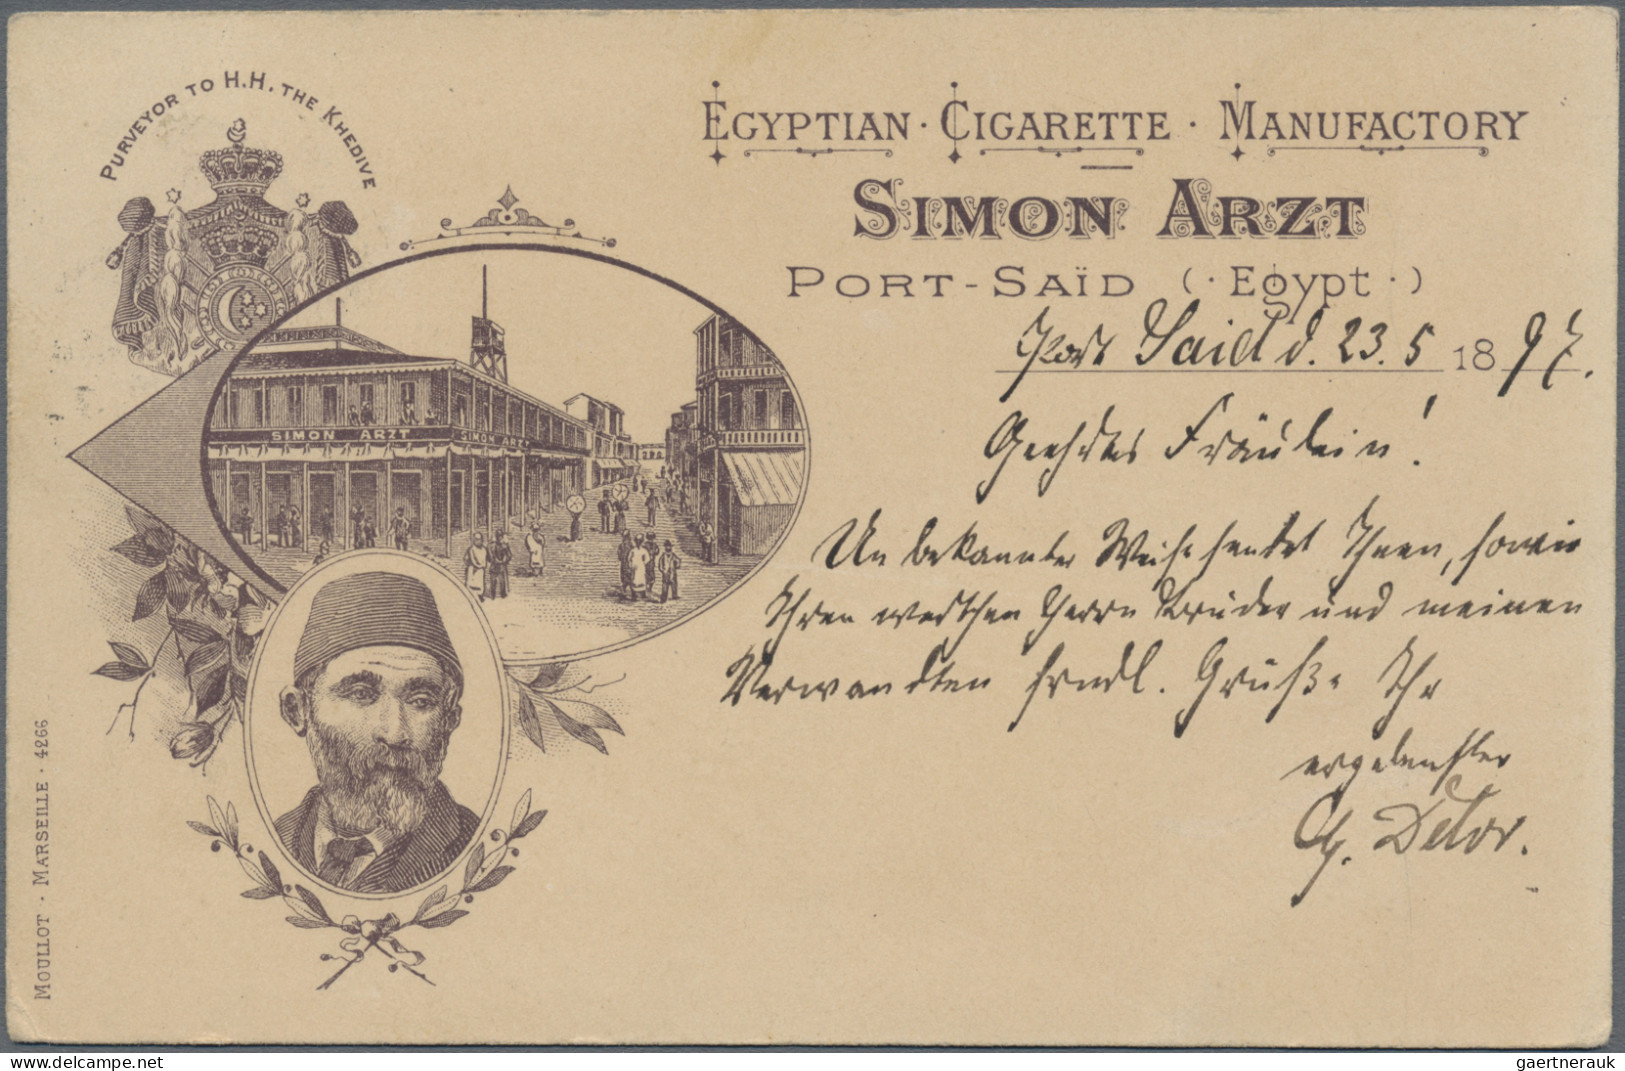 PURVEYOR TO H.H. THE KHEDIVE
EGYPTIAN · CIGARETTE · MANUFACTORY
SIMON ARZT
PORT-SAÏD (· Egypt ·)
Port Said d. 23. 5 1897.
Geehrtes Fräulein!
Unbekannter Weise sendet Ihnen, sowie
Ihren werthen Herrn Bruder und meinen
Verwandten frndl. Grüße Ihr
ergebenster
SIMON ARZT
SIMON ARZT
MOULLOT · MARSEILLE · 4266
www.delcampe.net
gaertnerauk